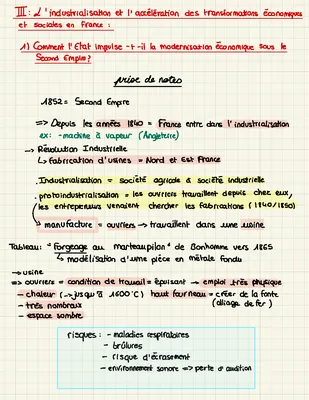 III: L'industrialisation et l'accélération des transformations économiques
et sociales en France :
1) Comment l'Etat impulse-t-il la modernisation économique sous le
Second Empire?
prise de notes
1852 = Second Empire
=> Depuis les années 1840 = France entre dans l'industrialisation
ex: -machine à vapeur (Angleterre)
-> Révolution Industrielle
↳ Fabrication d'usines = Nord et Est France
. Industrialisation = société agricole à société industrielle
. protoindustrialisation = les ouvriers travaillent depuis chez eux,
les entrepreneurs venaient chercher les fabrications (1840/1850)
manufacture = ouvriers -> travaillent dans une usine
Tableau: "Forgeage au marteau pilon" de Bonhomme vers 1865
↳ modélisation d'une pièce en métale fondu
-> usine
=> ouvriers = condition de travail = épuisant -> emploi très physique
- chaleur (-> jusqu'à 1600°C) haut fourneau = créer de la fonte
- très nombreux (alliage de fer)
- espace sombre
risques : - maladies respiratoires
- brûlures
- risque d'écrasement
- environnement sonore => perte d'audition